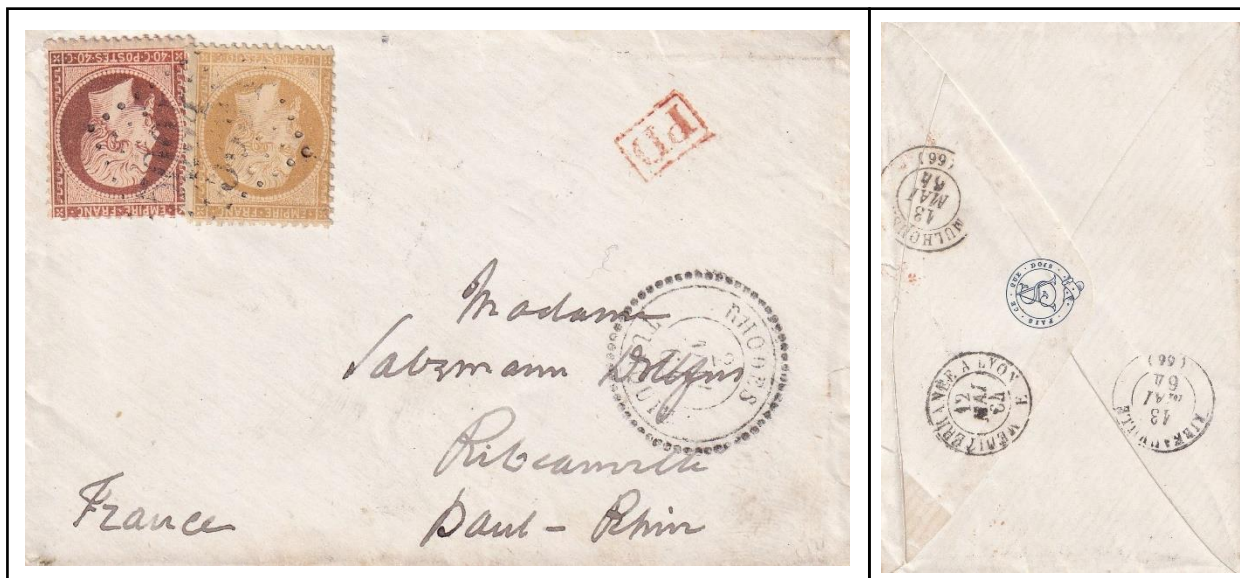 40·C·POSTES·40·C
10·C·POSTES·10·C
EMPIRE·FRANC
EMPIRE·FRANC
PD
RHODES
Madame
Salzmann Dollfus
Ribeauville
Haut-Rhin
France
MULHOUSE
13
MAI
64
(66)
FAYS·CE·QUE·DOIS
MEDITERRANEE A LYON
12
MAI
64
RIBEAUVILLE
13
MAI
64
(66)